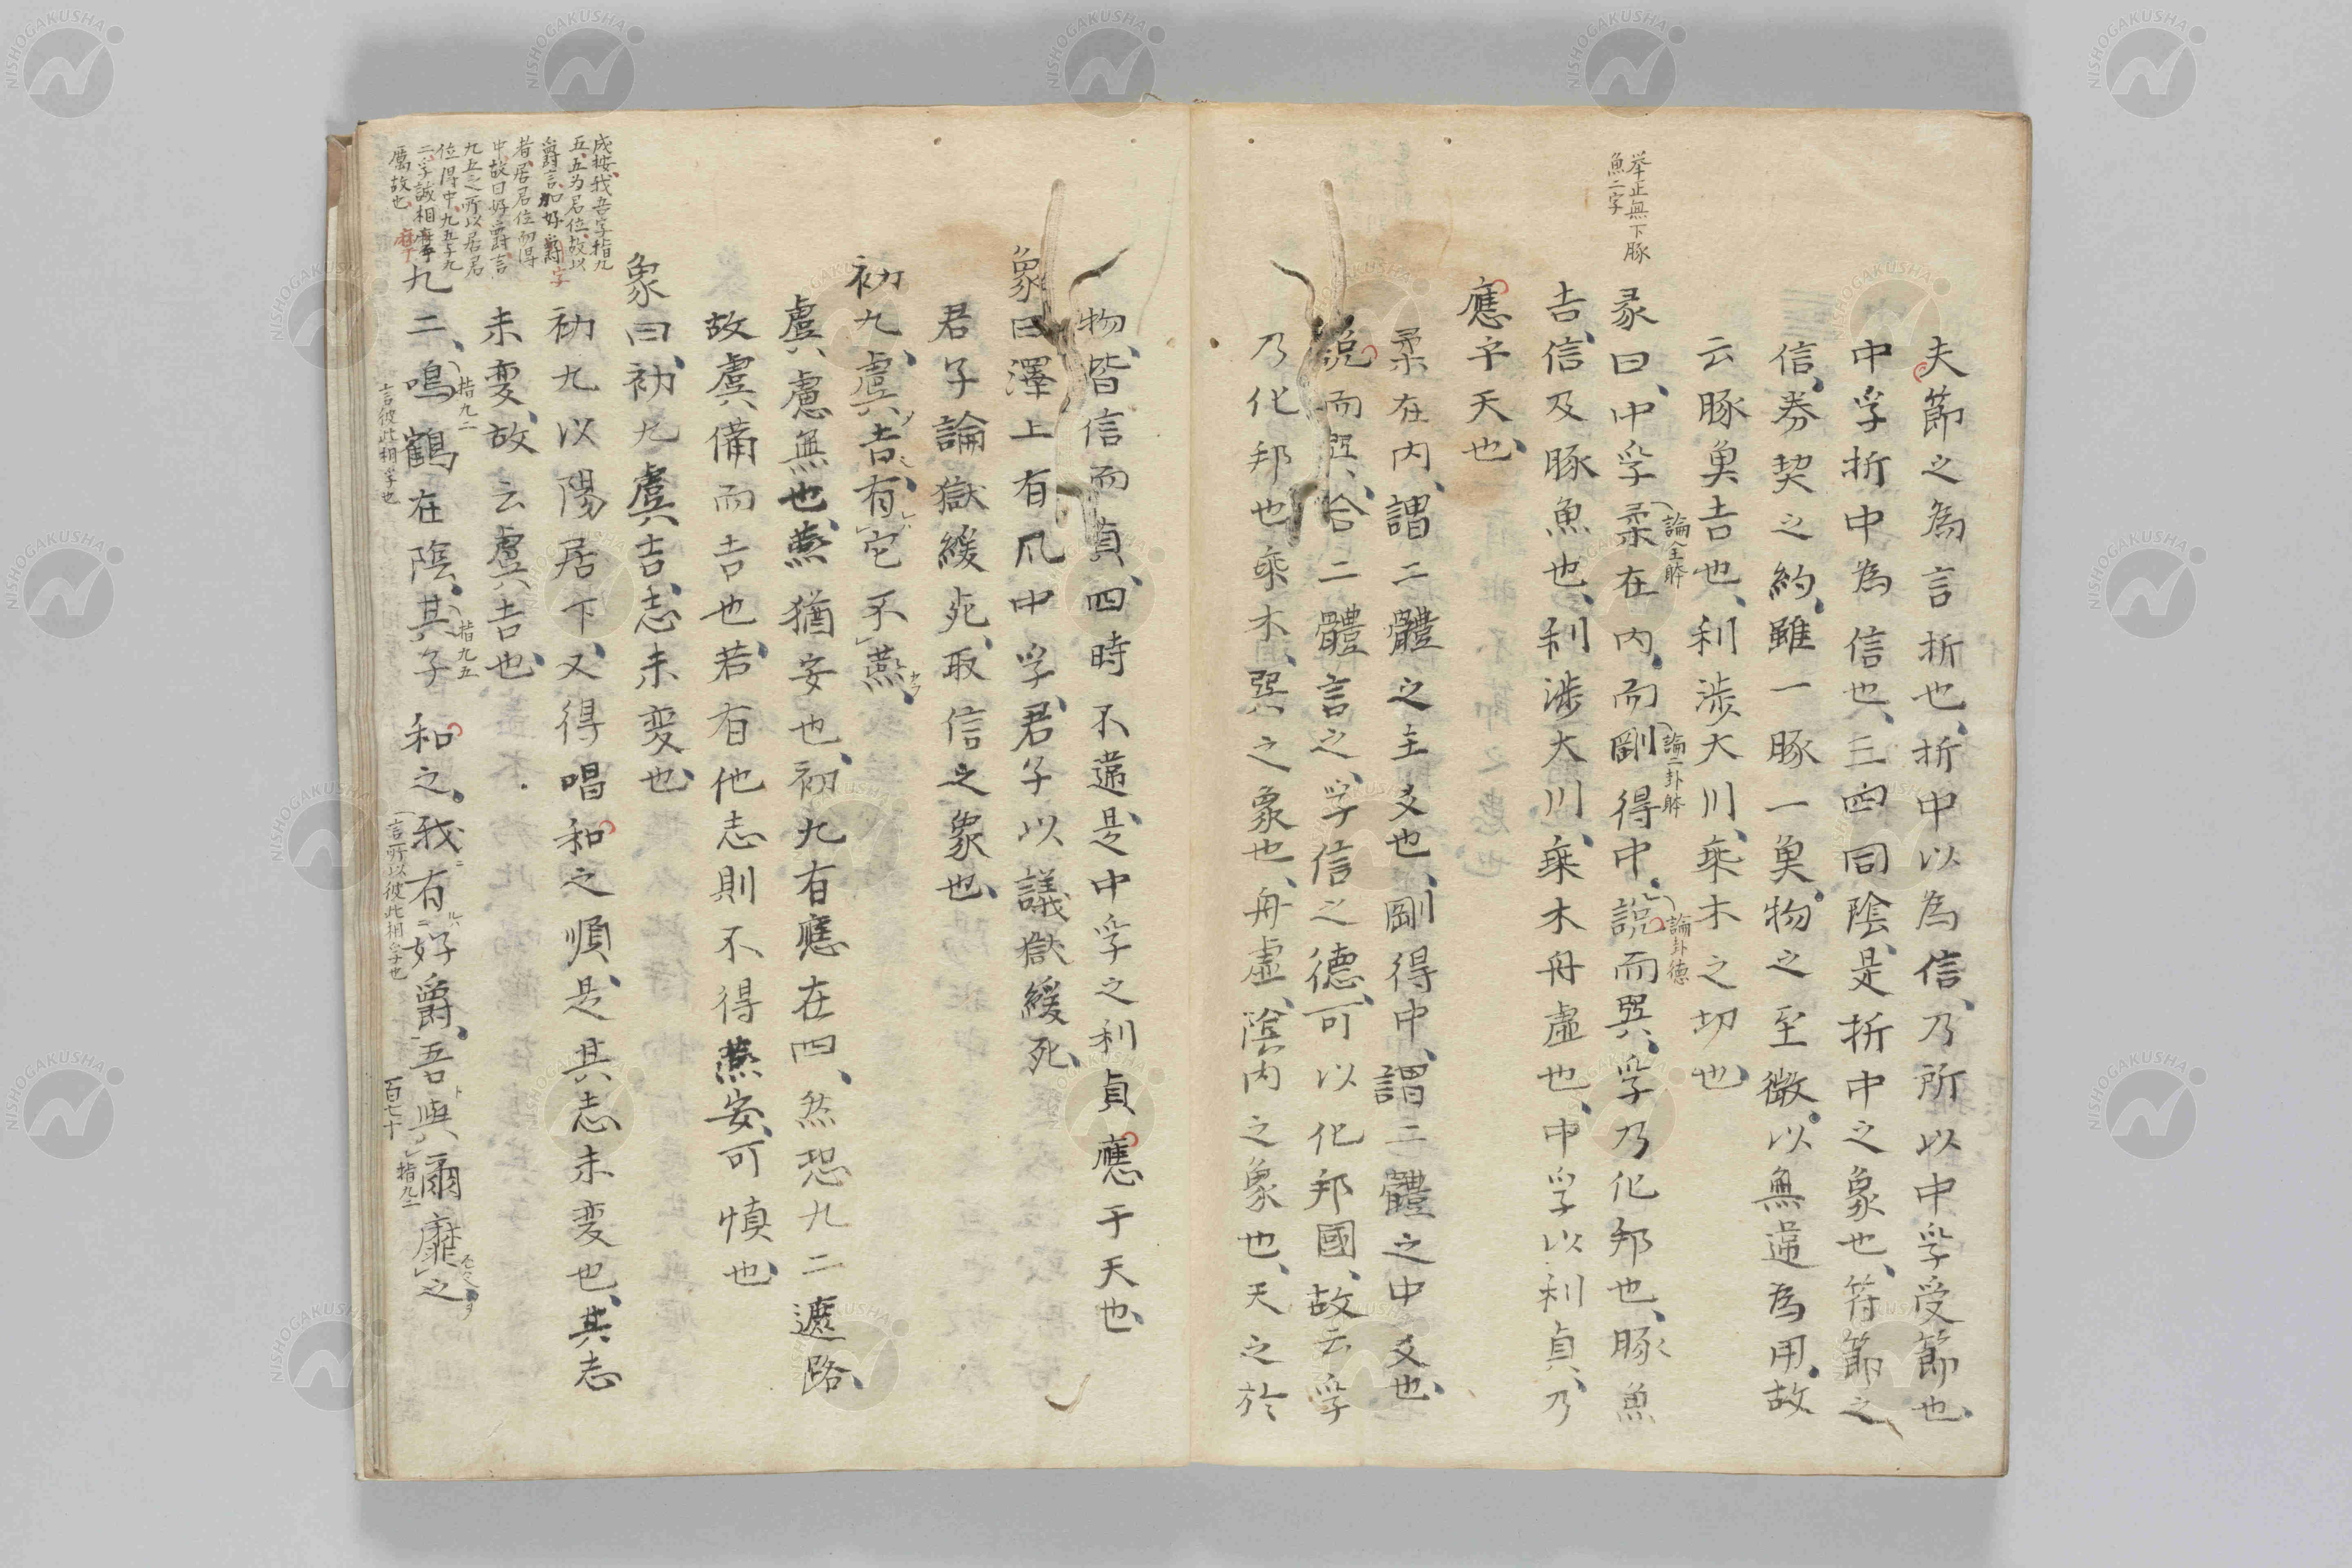 夫節之為言折也、折中以為信、乃所以中孚受節也、
中孚折中為信也、三四同陰、是折中之象也、符節之
信、券契之約、雖一豚一魚、物之至微、以無違為用、故
云豚魚吉也、利渉大川、乗木之功也、
挙正無下豚
魚二字
彖曰、中孚柔在内、而剛得中、説而巽、孚乃化邦也、豚魚
論全體
論二卦體
論卦徳
吉、信及豚魚也、利渉大川、乗木舟虚也、中孚以利貞、乃
應乎天也、
柔在内、謂二體之主爻也、剛得中、謂二體之中爻也、
説而巽、合二體言之、孚信之德、可以化邦國、故云孚
乃化邦也、乗木、巽之象也、舟虚、陰内之象也、天之於
物、皆信而貞、四時不違、是中孚之利貞應于天也、
象曰、澤上有風中孚、君子以議獄緩死、
君子論獄緩死、取信之象也、
初九、虞吉、有它不燕、
虞、慮無也、燕猶安也、初九有應在四、然恐九二遮路、
故虞備而吉也、若有他志則不得燕安、可慎也、
象曰、初九虞吉、志未変也、
初九以陽居下、又得唱和之順、是其志未変也、其志
未変、故云虞吉也、
九二、鳴鶴在陰、其子和之、我有好爵、吾與爾靡之、
指九二
指九五
言彼此相孚也
言所以彼此相孚也
指九二
百七十
成按、我吾字指九
五、五为君位、故以
爵言、加好爵字
者、居君位而得
中、故曰好爵、言
九五之所以居君
位得中、九五于九
二、孚誠相
厲故也
NISHOGAKUSHA